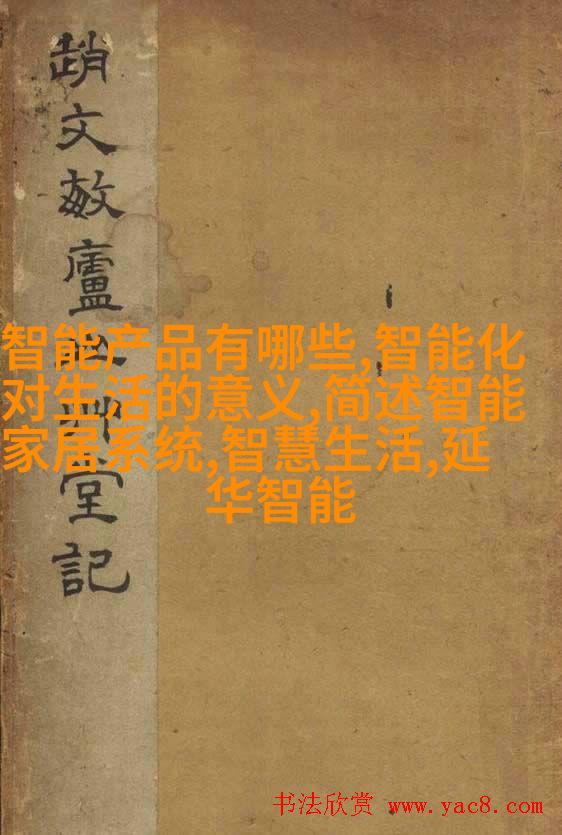 趙文敏廬山艸堂記
智能产品有哪些,智能化
对生活的意义,简述智能
家居系统,智慧生活,延
华智能
书法欣赏 www.yac8.com